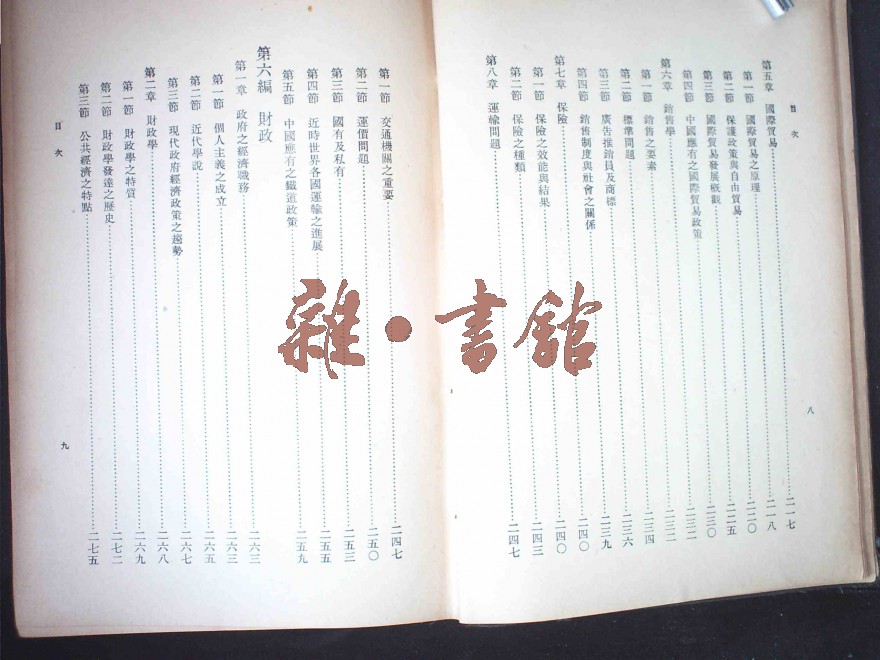 目次
第五章 國際貿易……二一七
第一節 國際貿易之原理……二一八
第二節 保護政策與自由貿易……二二〇
第三節 國際貿易發展概觀……二二五
第四節 中國應有之國際貿易政策……二三〇
第六章 銷售學……二三二
第一節 銷售之要素……二三二
第二節 標準問題……二三四
第三節 廣告推銷員及商標……二三六
第四節 銷售制度與社會之關係……二三九
第七章 保險……二四〇
第一節 保險之效能與結果……二四〇
第二節 保險之種類……二四三
第八章 運輸問題……二四七
八
第一節 交通機關之重要……二四七
第二節 運價問題……二五〇
第三節 國有及私有……二五三
第四節 近時世界各國運輸之進展……二五五
第五節 中國應有之鐵道政策……二五九
第六編 財政
第一章 政府之經濟職務……二六三
第一節 個人主義之成立……二六三
第二節 近代學說……二六五
第三節 現代政府經濟政策之趨勢……二六七
第二章 財政學……二六八
第一節 財政學之特質……二六九
第二節 財政學發達之歷史……二七二
第三節 公共經濟之特點……二七五
目次
九
雜·書館